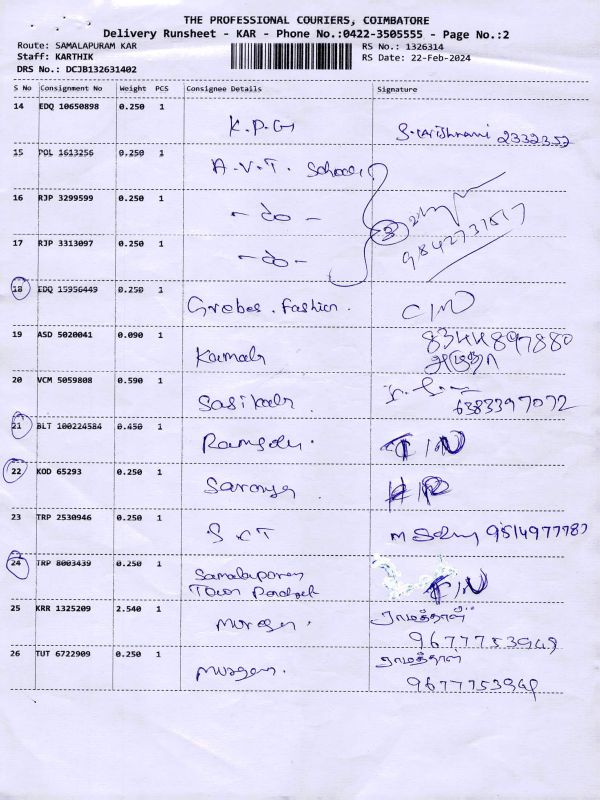 THE PROFESSIONAL COURIERS, COIMBATORE
Delivery Runsheet - KAR - Phone No.:0422-3505555 - Page No.:2
Route: SAMALAPURAM KAR
RS No.: 1326314
Staff: KARTHIK
RS Date: 22-Feb-2024
DRS No.: DCJB132631402
S No Consignment No Weight PCS Consignee Details Signature
14 EDQ 10650898 0.250 1 K.P.G 2332357
15 POL 1613256 0.250 1 A.V.T. School
16 RJP 3299599 0.250 1 - do -
3 9842731517
17 RJP 3313097 0.250 1 - do -
18 EDQ 15956449 0.250 1 Grebes. Fashion.
19 ASD 5020041 0.090 1 Kamala 8344897880
20 VCM 5059808 0.590 1 Sasikala 6383397072
21 BLT 100224584 0.450 1 Ramsolu.
22 KOD 65293 0.250 1 Saranya
23 TRP 2530946 0.250 1 S.K.T 9514977787
24 TRP 8003439 0.250 1 Samalapuram
Town
25 KRR 1325209 2.540 1 Murugan. ராமத்தாள்
9677753948
26 TUT 6722909 0.250 1 Murugan. ராமத்தாள்
9677753948